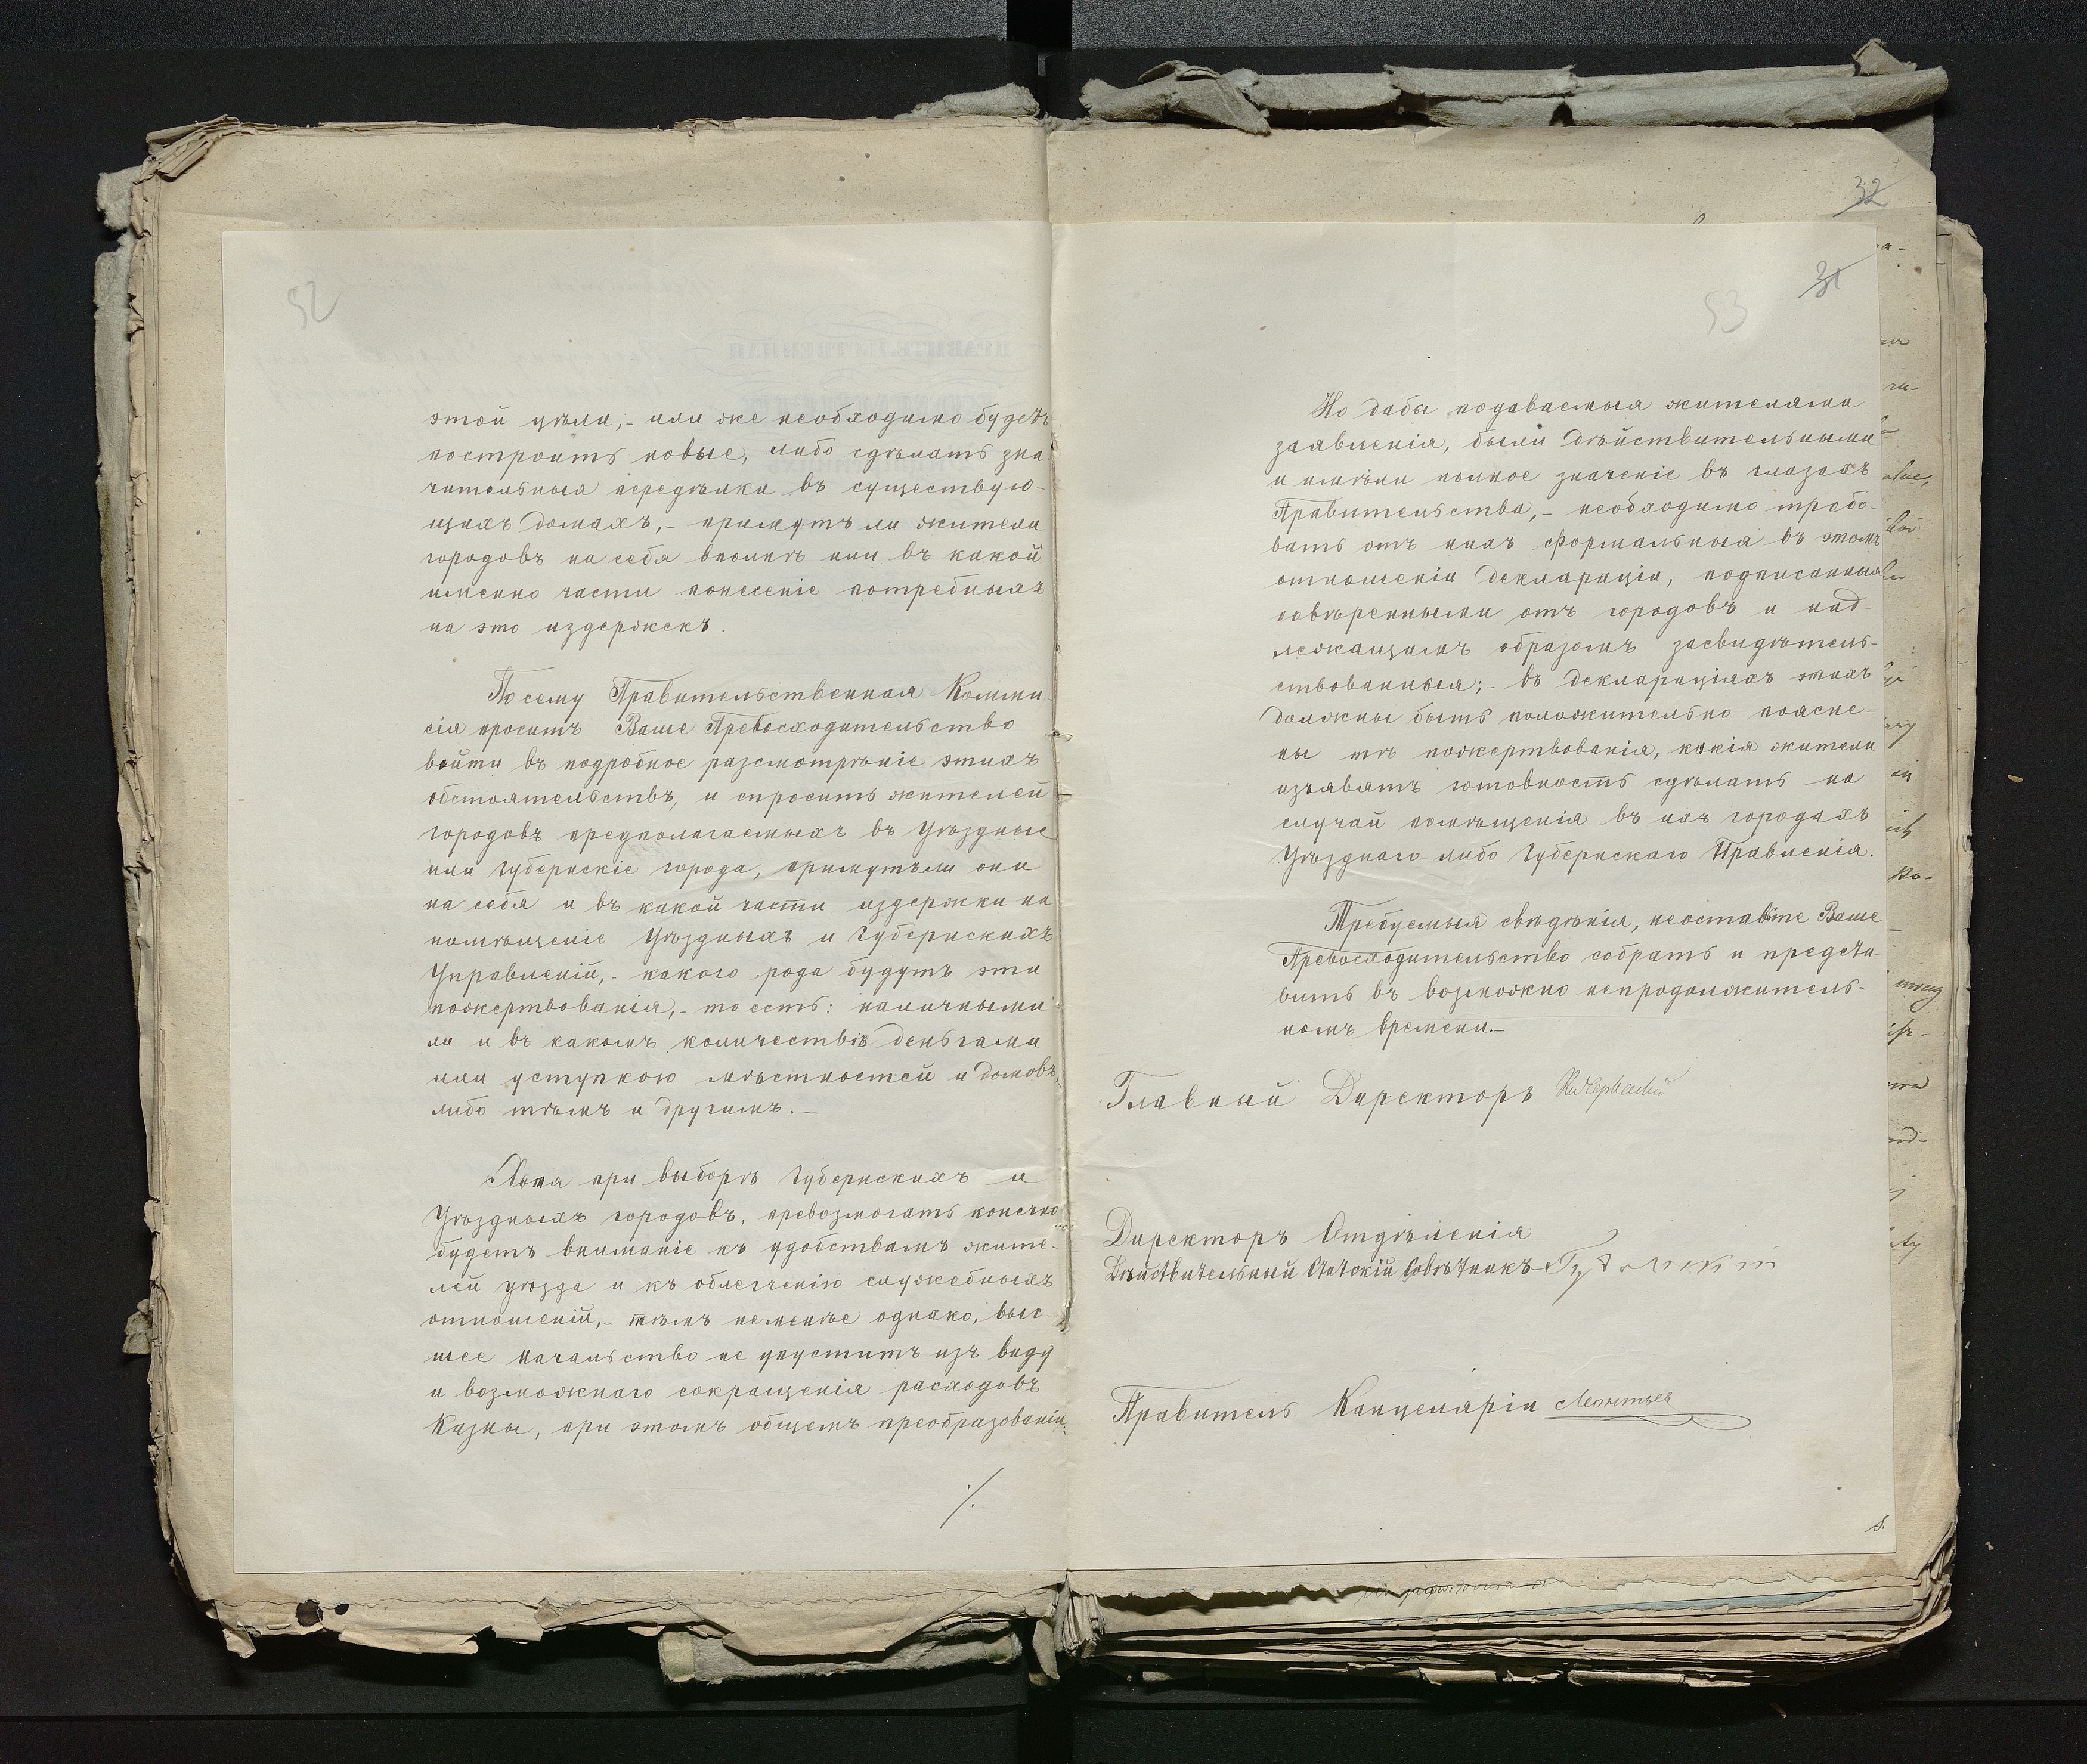 52
этой цѣли,- или же необходимо будетъ
построить новые, либо сдѣлать зна-
чительныя передѣлки въ существую-
щихъ домахъ,- примутъ ли жители
городовъ на себя вполнѣ или въ какой
именно части понесеніе потребныхъ
на это издержекъ.
Посему Правительственная Комми-
сія проситъ Ваше Превосходительство
войти въ подробное разсмотрѣніе этихъ
обстоятельствъ, и спросить жителей
городовъ предполагаемыхъ въ Уѣздные
или Губернскіе города, примутъ ли они
на себя и въ какой части издержки на
помѣщеніе Уѣздныхъ и Губернскихъ
Управленій,- какого рода будутъ эти
пожертвованія,- то есть: наличными
ли и въ какомъ количествѣ деньгами
или уступкою мѣстностей и домовъ,
либо тѣмъ и другимъ.-
Хотя при выборѣ Губернскихъ и
Уѣздныхъ городовъ, превозмогать конечно
будетъ вниманіе къ удобствамъ жите-
лей уѣзда и къ облегченію служебныхъ
отношеній,- тѣмъ неменѣе однако, выс-
шее начальство не упуститъ изъ виду
и возможнаго сокращенія расходовъ
Казны, при этомъ общемъ преобразованіи.
./.
32
31
53
Но дабы подаваемыя жителями
заявленія, были дѣйствительными
и имѣли полное значеніе въ глазахъ
Правительства,- необходимо требо-
вать отъ нихъ формальныя въ этомъ
отношеніи декларація, подписанныя
довѣренными отъ городовъ и над-
лежащимъ образомъ засвидѣтель-
ствованныя;- въ деклараціяхъ этихъ
должны быть положительно поясне-
ны тѣ пожертвованія, какія жители
изъявятъ готовность сдѣлать на
случай помѣщенія въ ихъ городахъ
Уѣзднаго либо Губернскаго Правленія.
Требуемыя свѣдѣнія, неоставьте Ваше
Превосходительство собрать и предста-
вить въ возможно непродолжитель-
номъ времени.-
Главный Директоръ Кн Черкаскій
Директоръ Отдѣленія
Дѣйствительный Статскій Совѣтникъ
Правитель Канцеляріи Леонтьев